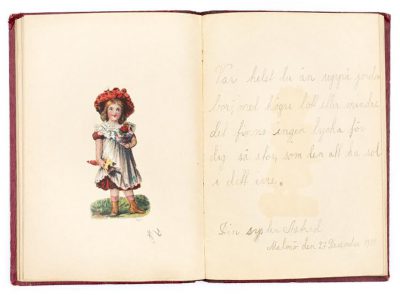 Var helst du än uppå jorden
bor, med högre lott eller mindre
det finnes ingen lycka för
dig så stor, som den att ha sol
i ditt inre.
Din syster Astrid
Malmö den 27 December